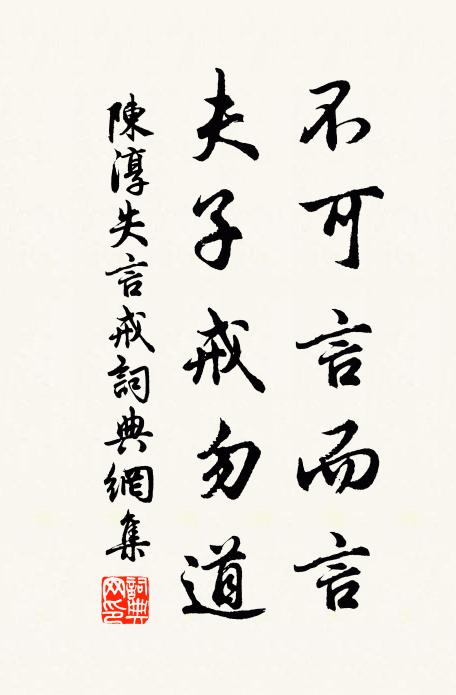 不可言而言
夫子戒勿道
陳淳失言戒詞典網集
詞典
网印